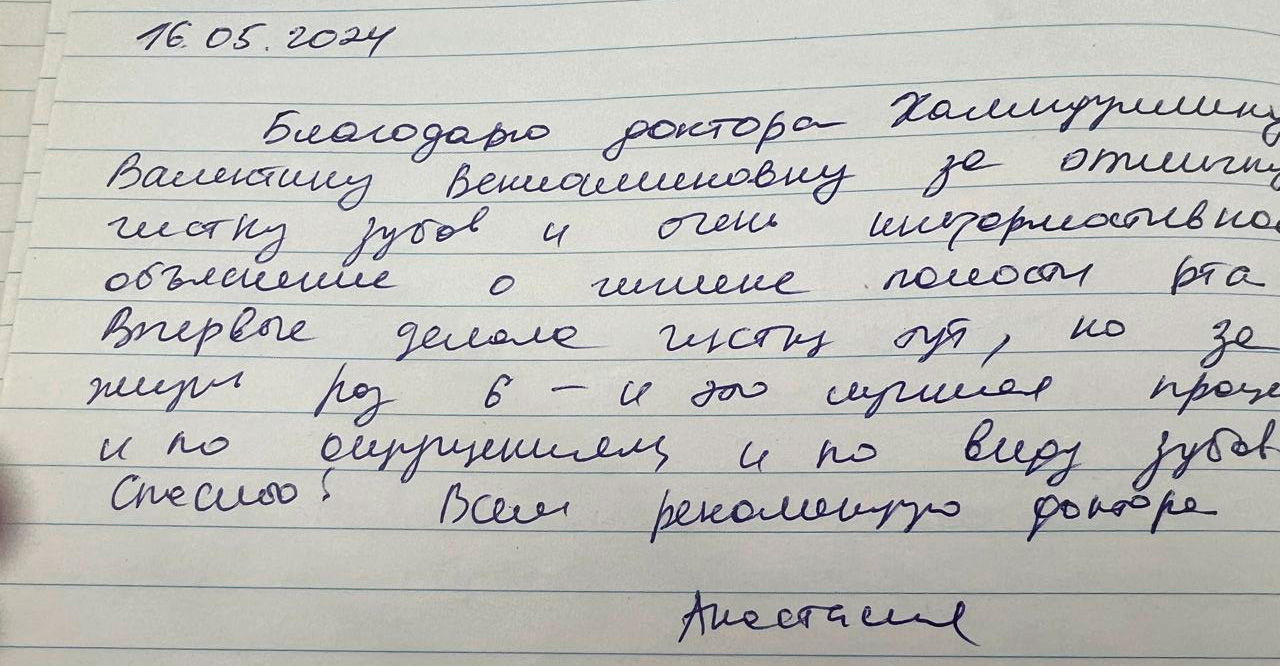 16.05.2024
Благодарю доктора
Валентину Вениаминовну за отличну
чистку зубов и очень информативное
объяснение о гигиене полости рта
Впервые делала чистку тут, но за
жизнь раз 6 – и это лучшая проце
и по ощущениям, и по виду зубов
Спасибо! Всем рекомендую доктора
Анастасия